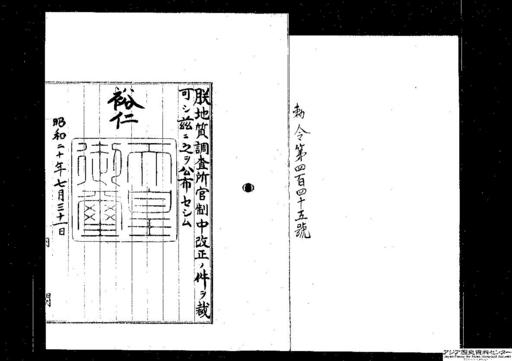 勅令第四百四十五號
朕地質調査所官制中改正ノ件ヲ裁
可シ茲ニ之ヲ公布セシム
裕仁
天皇
御璽
昭和二十年七月三十一日
アジア歴史資料センター